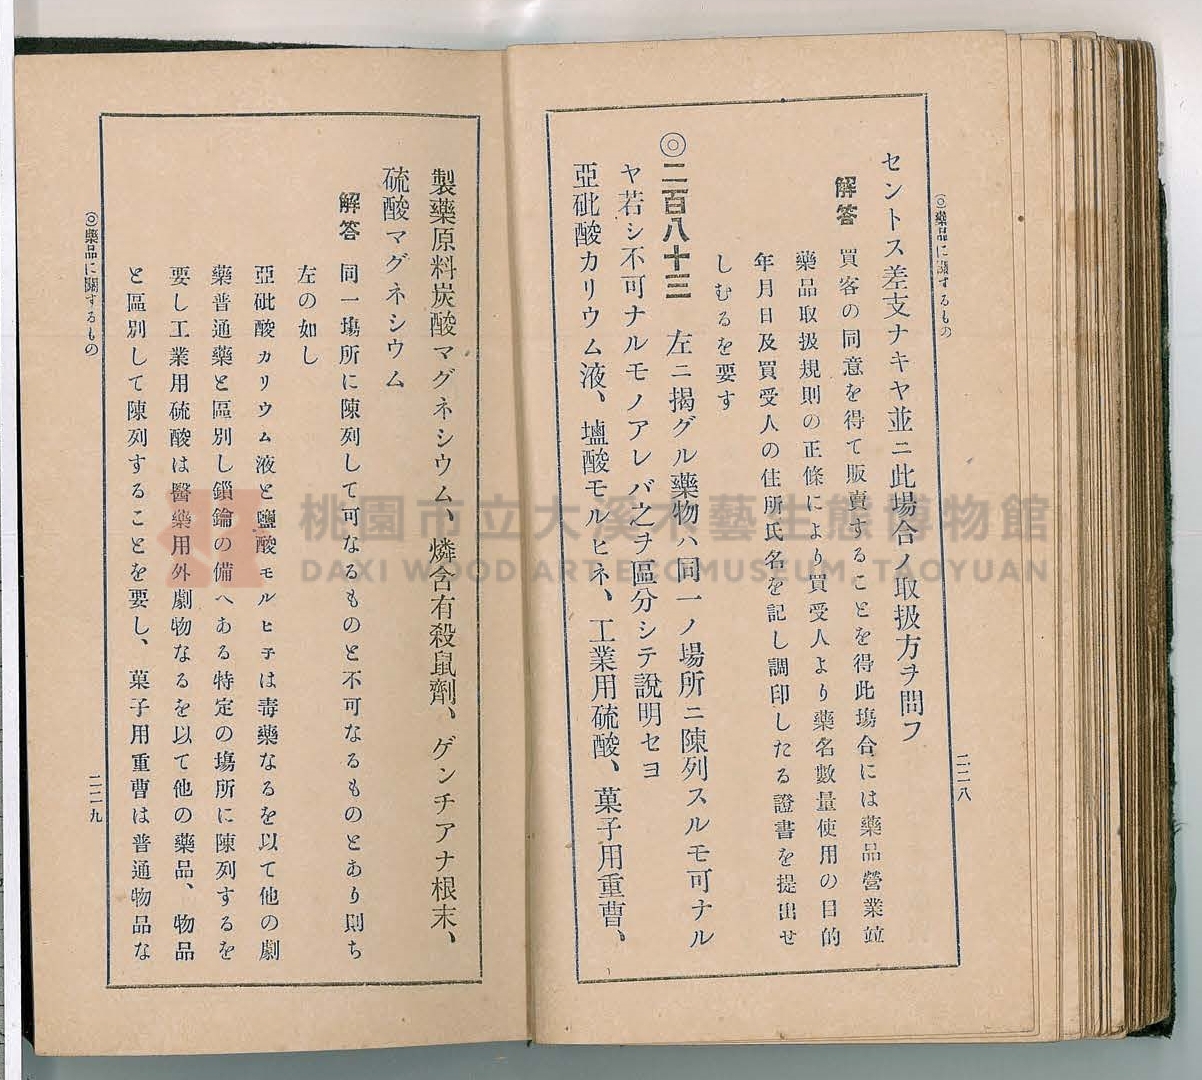 ◎藥品に關するもの
二二八
セントス差支ナキヤ並ニ此場合ノ取扱方ヲ問フ
解答 買客の同意を得て販賣することを得此塲合には藥品營業竝
藥品取扱規則の正條により買受人より藥名數量使用の目的
年月日及買受人の住所氏名を記し調印したる證書を提出せ
しむるを要す
◎二百八十三 左ニ揭グル藥物ハ同一ノ場所ニ陳列スルモ可ナル
ヤ若シ不可ナルモノアレバ之ヲ區分シテ說明セヨ
亞砒酸カリウム液、塩酸モルヒネ、工業用硫酸、菓子用重曹、
製藥原料炭酸マグネシウム、燐含有殺鼠劑、ゲンチアナ根末、
硫酸マグネシウム
解答 同一塲所に陳列して可なるものと不可なるものとあり則ち
左の如し
亞砒酸カリウム液と鹽酸モルヒ子は毒藥なるを以て他の劇
藥普通藥と區別し鎖鑰の備へある特定の塲所に陳列するを
要し工業用硫酸は醫藥用外劇物なるを以て他の藥品、物品
と區別して陳列することを要し、菓子用重曹は普通物品な
◎藥品に關するもの
二二九
桃園市立大溪木藝生態博物館
DAXI WOOD ART ECOMUSEUM, TAOYUAN